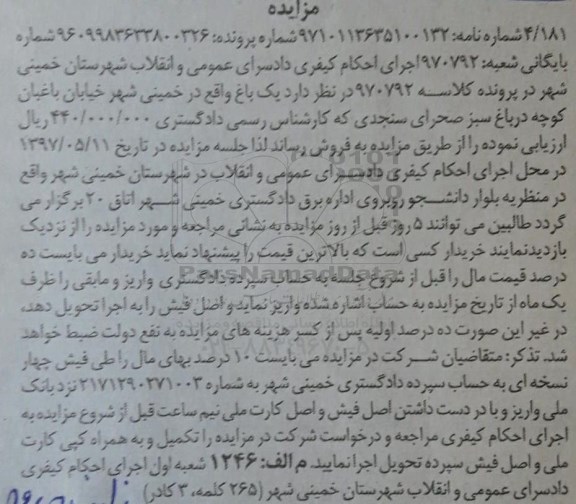 مزایده
۴/۱۸۱ شماره نامه: ۹۷۱۰۱۱۳۶۳۵۱۰۰۱۳۲ شماره پرونده: ۹۶۰۹۹۸۳۶۳۳۸۰۰۳۲۶ شماره
بایگانی شعبه: ۹۷۰۷۹۲ اجرای احکام کیفری دادسرای عمومی و انقلاب شهرستان خمینی
شهر در پرونده کلاسه ۹۷۰۷۹۲ در نظر دارد یک باغ واقع در خمینی شهر خیابان باغبان
کوچه درباغ سبز صحرای سنجدی که کارشناس رسمی دادگستری ۴۴۰/۰۰۰/۰۰۰ ریال
ارزیابی نموده را از طریق مزایده به فروش رساند لذا جلسه مزایده در تاریخ ۱۳۹۷/۰۵/۱۱
در محل اجرای احکام کیفری دادسرای عمومی و انقلاب در شهرستان خمینی شهر واقع
در منظریه بلوار دانشجو روبروی اداره برق دادگستری خمینی شهر اتاق ۲۰ برگزار می
گردد طالبین می توانند ۵ روز قبل از روز مزایده به نشانی مراجعه و مورد مزایده را از نزدیک
بازدید نمایند خریدار کسی است که بالاترین قیمت را پیشنهاد نماید خریدار می بایست ده
درصد قیمت مال را قبل از شروع جلسه به حساب سپرده دادگستری واریز و مابقی را ظرف
یک ماه از تاریخ مزایده به حساب اشاره شده واریز نماید و اصل فیش را به اجرا تحویل دهد،
در غیر این صورت ده درصد اولیه پس از کسر هزینه های مزایده به نفع دولت ضبط خواهد
شد. تذکر: متقاضیان شرکت در مزایده می بایست ۱۰ درصد بهای مال را طی فیش چهار
نسخه ای به حساب سپرده دادگستری خمینی شهر به شماره ۲۱۷۱۲۹۰۲۷۱۰۰۳ نزد بانک
ملی واریز و با در دست داشتن اصل فیش و اصل کارت ملی نیم ساعت قبل از شروع مزایده به
اجرای احکام کیفری مراجعه و درخواست شرکت در مزایده را تکمیل و به همراه کپی کارت
ملی و اصل فیش سپرده تحویل اجرا نمایید. م الف: ۱۲۴۶ شعبه اول اجرای احکام کیفری
دادسرای عمومی و انقلاب شهرستان خمینی شهر (۲۶۵ کلمه، ۳ کادر)
ParsNamadData